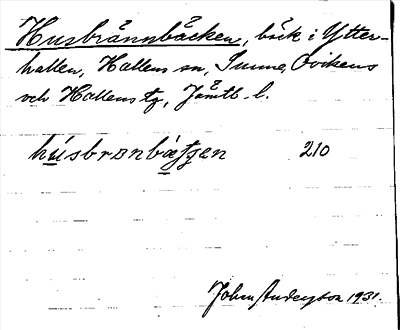 Husbrännbäcken, bäck i Ytter-
hallen, Hallens sn, Sunne, Ovikens
och Hallens tg, Jämtl. l.
húsbrɒnbæ̀tʃen 210
John Andersson 1931.